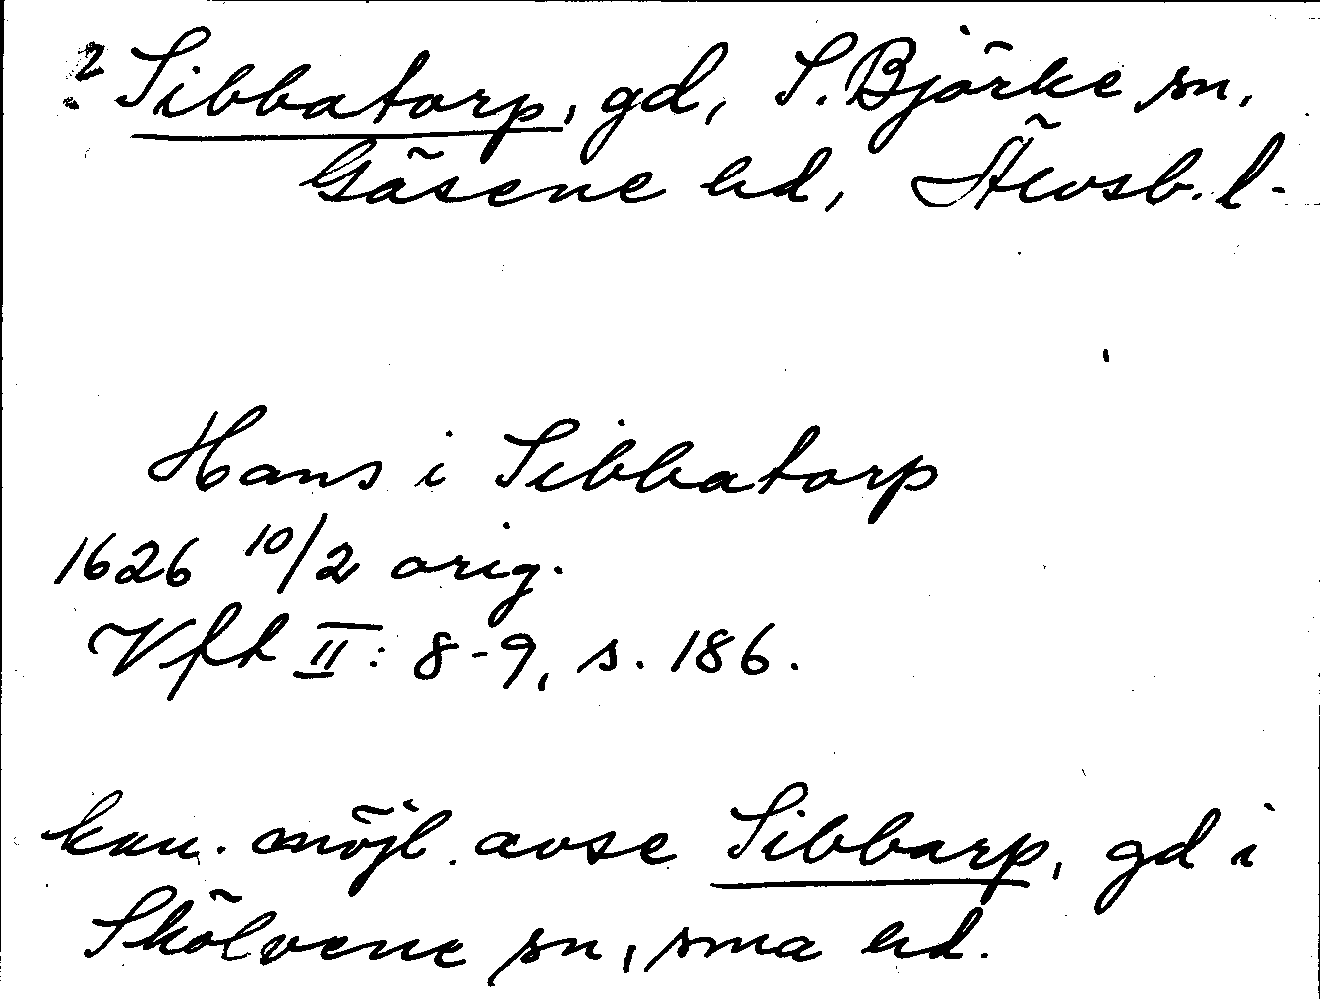 ? Sibbatorp, gd, S. Björke sn,
Gäsene hd, Älvsb. l.
Hans i Sibbatorp
1626 10/2 orig.
Vfht II: 8-9, s. 186.
kan. möjl. avse Sibbarp, gd i
Skölvene sn, sma hd.